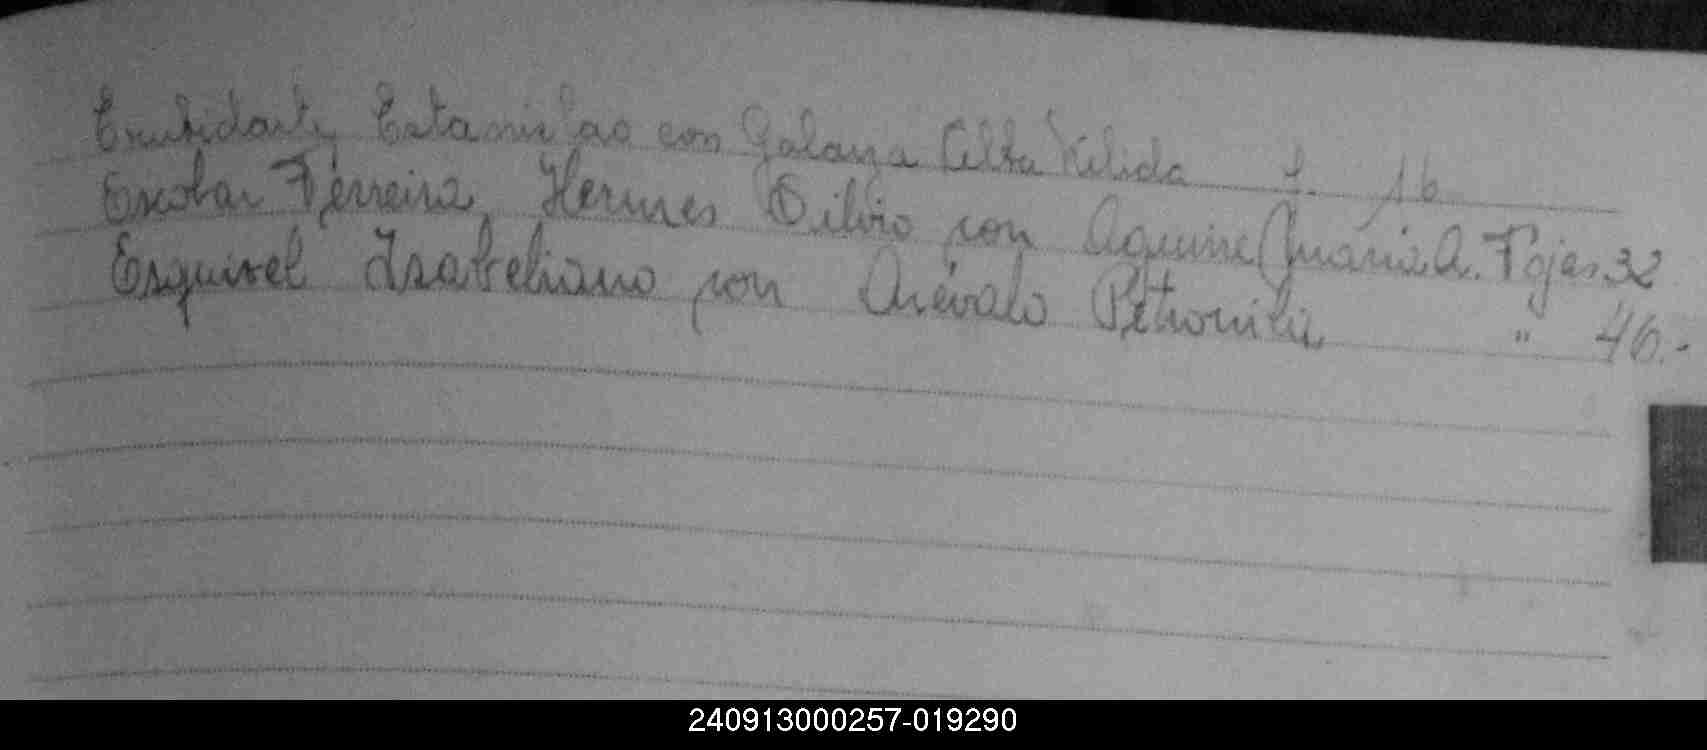 Estanislao con Galarza Alba Nelida f. 16
Escobar Ferreira, Hermes Silvio con Aguirre Maria A. Fojas 32
Esquivel Isabeliano con Arévalo Petronila " 46.-
240913000257-019290